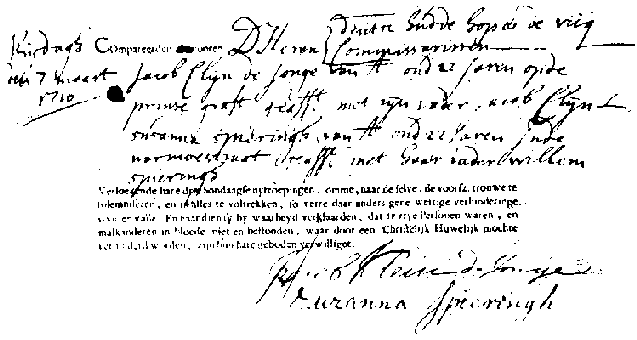 Compareerden voor D'Heren
Commissarissen
den 7 maart Jacob Clyn de Jonge van A. oud 22 Jaren op de
1710
prinse graft geast. met zyn vader Jacob Clyn
Susanna Spierings van A. oud 22 Jaren in de
warmoesstraat geast. met haar vader Willem
Spierings
Versoekende hare drie Sondaagse uytroepingen, omme, naar de selve, de voorsz. trouwe te
solemniseren, en in alles te voltrekken, so verre daar anders gene wettige verhinderinge
voor en valle. En naar dien sy by waarheyd verklaarden, dat sy vrye Persoonen waren, en
malkanderen in bloede niet en bestonden, waar door een Christelijk Huwelijk mochte
verhindert worden, zijn hun hare geboden verwilliget.
Jacob Klein de Jonge
Suzanna Spieringh